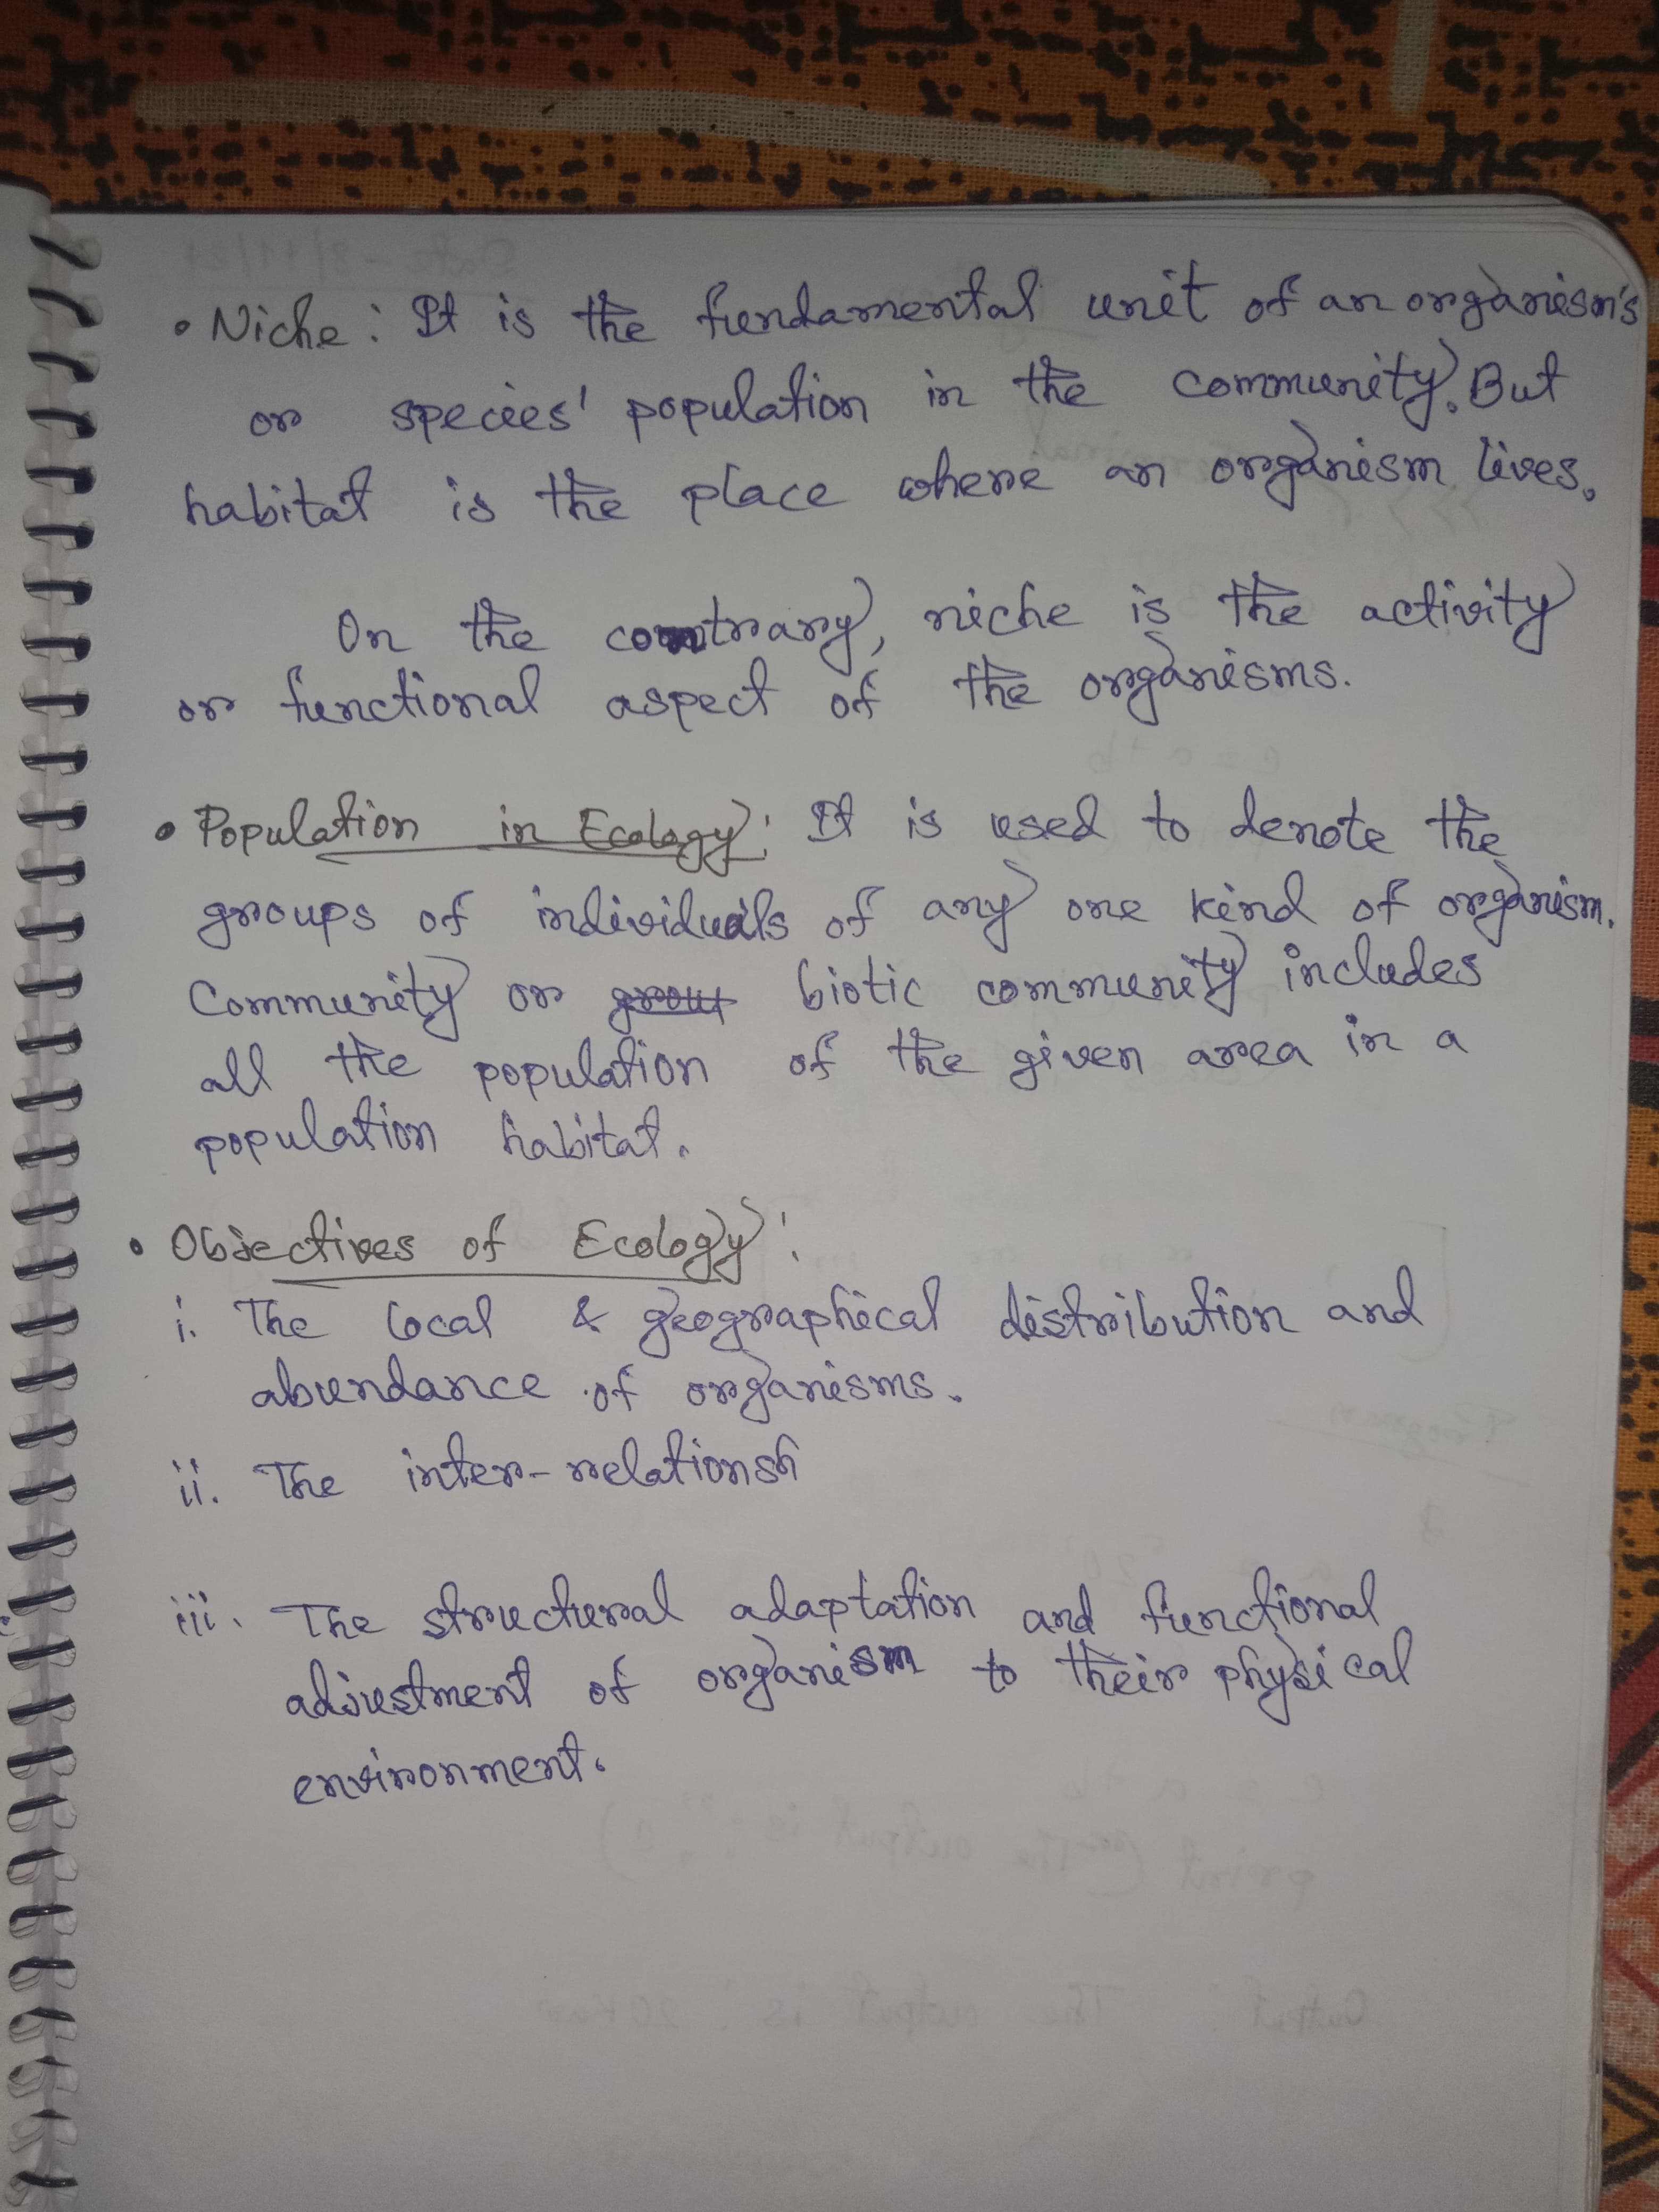 • Niche : It is the fundamental unit of an organism's
or species' population in the community. But
habitat is the place where an organism lives.
On the contrary, niche is the activity
or functional aspect of the organisms.
• Population in Ecology : It is used to denote the
groups of individuals of any one kind of organism.
Community or biotic community includes
all the population of the given area in a
population habitat.
• Objectives of Ecology :
i. The local & geographical distribution and
abundance of organisms.
ii. The inter-relationsh
iii. The structural adaptation and functional
adjustment of organism to their physical
environment.